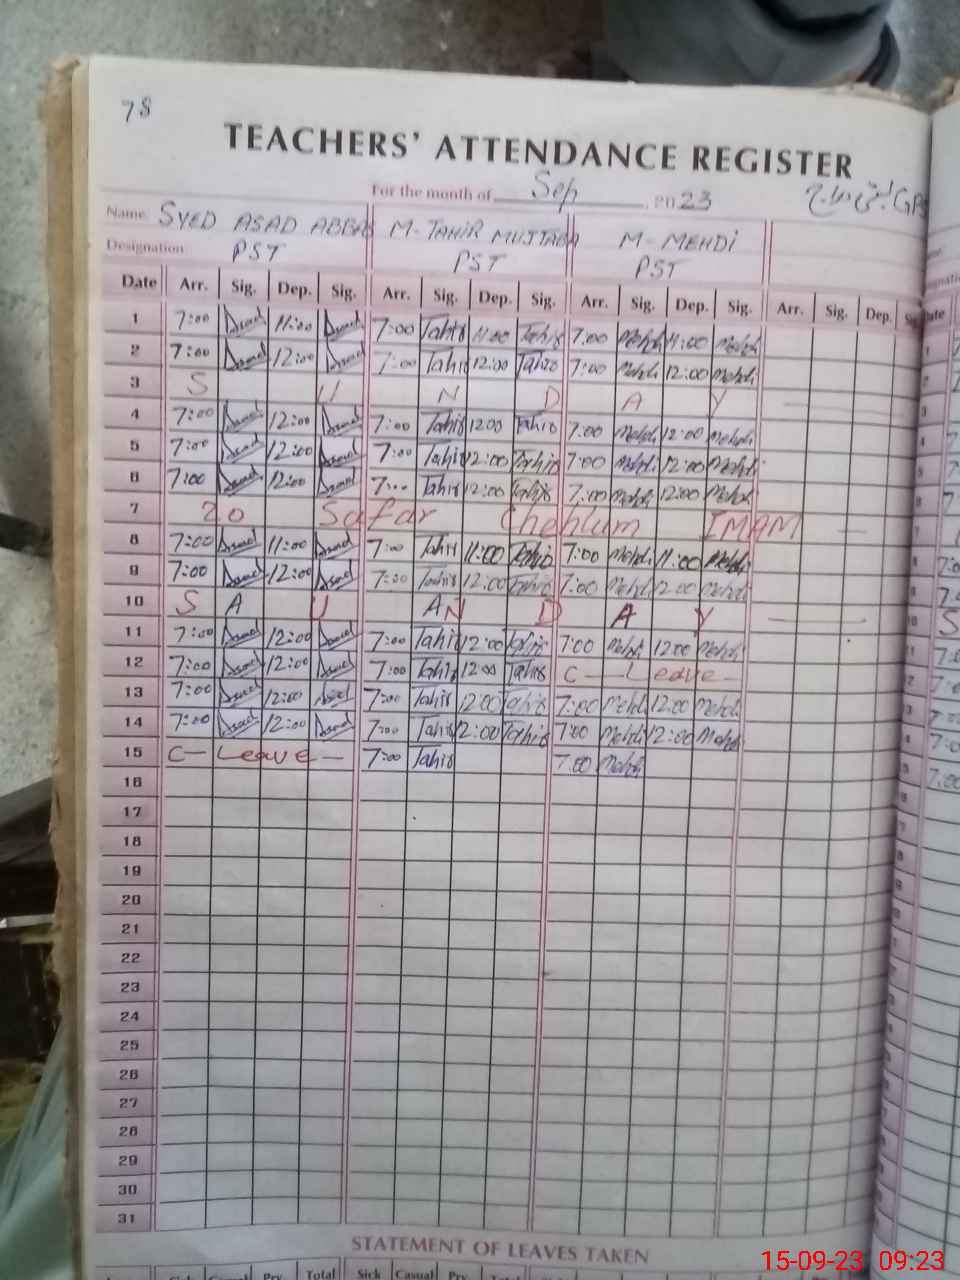 78
TEACHERS' ATTENDANCE REGISTER
For the month of Sep , 2023
Name. SYED ASAD ABBAS M-TAHIR MUJTABA M-MEHDI
Designation PST PST PST
Date Arr. Sig. Dep. Sig. Arr. Sig. Dep. Sig. Arr. Sig. Dep. Sig. Arr. Sig. Dep.
1 7:00 Asad 11:00 Asad 7:00 Tahir 11:00 Tahir 7:00 Mehdi 11:00 Mehdi
2 7:00 Asad 12:00 Asad 7:00 Tahir 12:00 Tahir 7:00 Mehdi 12:00 Mehdi
3 S U N D A Y
4 7:00 Asad 12:00 Asad 7:00 Tahir 12:00 Tahir 7:00 Mehdi 12:00 Mehdi
5 7:00 Asad 12:00 Asad 7:00 Tahir 12:00 Tahir 7:00 Mehdi 12:00 Mehdi
6 7:00 Asad 12:00 Asad 7:00 Tahir 12:00 Tahir 7:00 Mehdi 12:00 Mehdi
7 20 Safar Chehlum IMAM
8 7:00 Asad 11:00 Asad 7:00 Tahir 11:00 Tahir 7:00 Mehdi 11:00 Mehdi
9 7:00 Asad 12:00 Asad 7:00 Tahir 12:00 Tahir 7:00 Mehdi 12:00 Mehdi
10 S A U A N D A Y
11 7:00 Asad 12:00 Asad 7:00 Tahir 12:00 Tahir 7:00 Mehdi 12:00 Mehdi
12 7:00 Asad 12:00 Asad 7:00 Tahir 12:00 Tahir C - Leave -
13 7:00 Asad 12:00 Asad 7:00 Tahir 12:00 Tahir 7:00 Mehdi 12:00 Mehdi
14 7:00 Asad 12:00 Asad 7:00 Tahir 12:00 Tahir 7:00 Mehdi 12:00 Mehdi
15 C - Leave - 7:00 Tahir 7:00 Mehdi
16
17
18
19
20
21
22
23
24
25
26
27
28
29
30
31
STATEMENT OF LEAVES TAKEN
Sick Casual Prv. Total Sick Casual Prv.
15-09-23 09:23